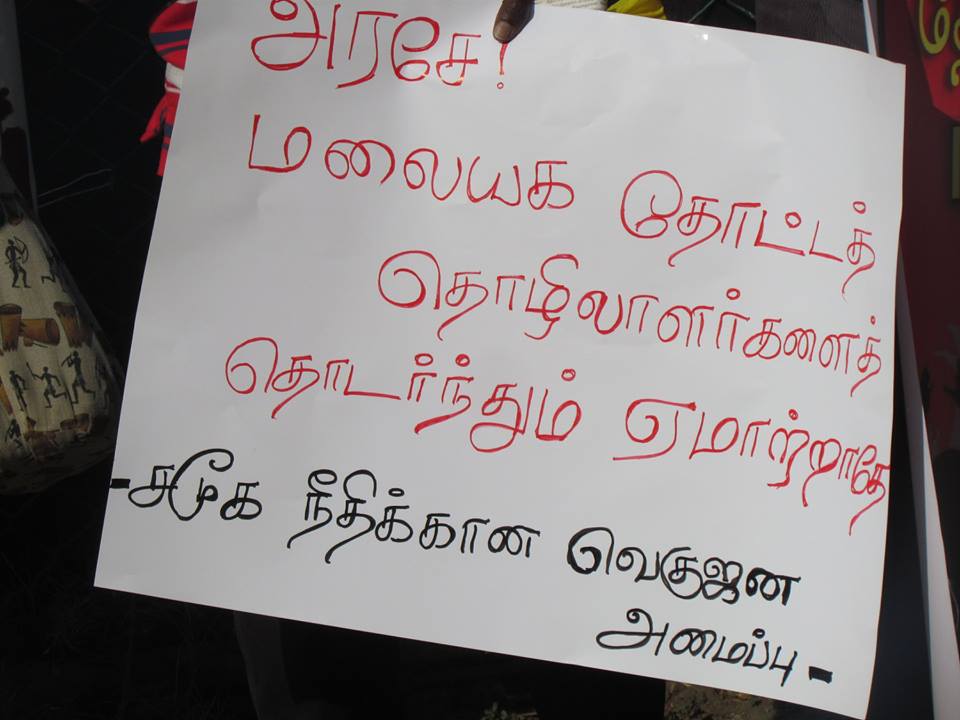 அரசே!
மலையக தோட்டத்
தொழிலாளர்களைத்
தொடர்ந்தும் ஏமாற்றாதே
-சமூக நீதிக்கான வெகுஜன
அமைப்பு-